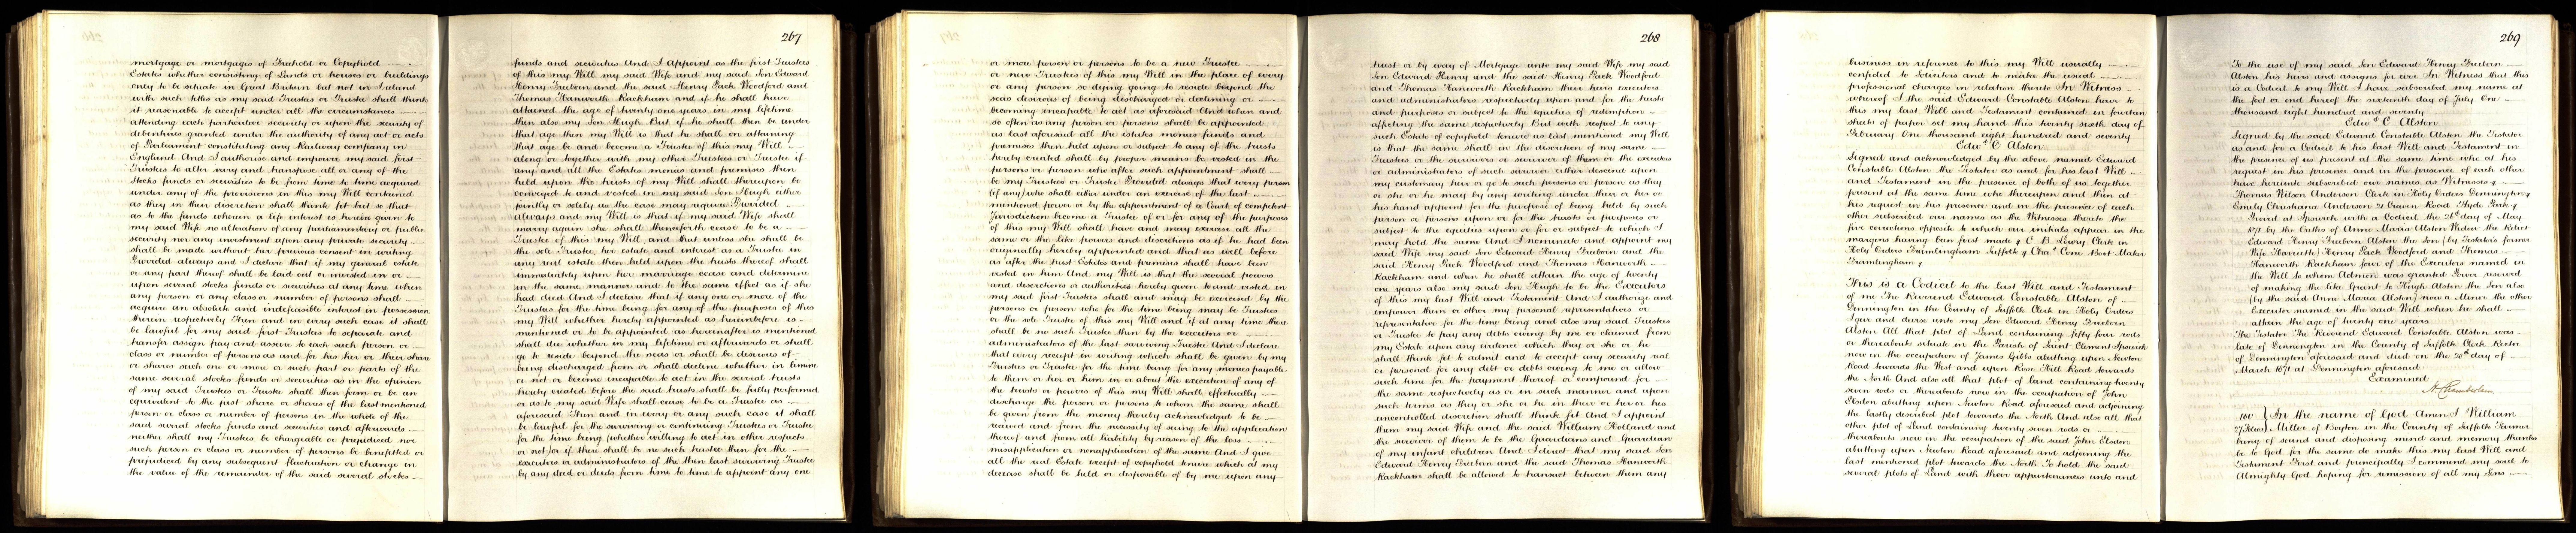 mortgage or mortgages of Freehold or Copyhold
Estates whether consisting of Lands or houses or buildings
only to be situate in Great Britain but not in Ireland
with such titles as my said Trustees or Trustee shall think
it reasonable to accept under all the circumstances
attending each particular security or upon the security of
debentures granted under the authority of any act or acts
of Parliament constituting any Railway company in
England And I authorise and empower my said first
Trustees to alter vary and transpose all or any of the
stocks funds or securities to be from time to time acquired
under any of the provisions in this my Will contained
as they in their discretion shall think fit but so that
as to the funds wherein a life interest is herein given to
my said Wife no alteration of any parliamentary or public
security nor any investment upon any private security
shall be made without her previous consent in writing
Provided always and I declare that if my general estate
or any part thereof shall be laid out or invested in or
upon several stocks funds or securities at any time when
any person or any class or number of persons shall
acquire an absolute and indefeasible interest in possession
therein respectively Then and in every such case it shall
be lawful for my said first Trustees to separate and
transfer assign pay and assure to each such person or
class or number of persons as and for his her or their share
or shares such one or more or such part or parts of the
same several stocks funds or securities as in the opinion
of my said Trustees or Trustee shall then form or be an
equivalent to the just share or shares of the last mentioned
person or class or number of persons in the whole of the
said several stocks funds and securities and afterwards
neither shall my Trustees be chargeable or prejudiced nor
such person or class or number of persons be benefitted or
prejudiced by any subsequent fluctuation or change in
the value of the remainder of the said several stocks
267
funds and securities And I appoint as the first Trustees
of this my Will my said Wife and my said Son Edward
Henry Freeborn and the said Henry Pack Woodford and
Thomas Hanworth Rackham and if he shall have
attained the age of twenty one years in my lifetime
then also my Son Hugh But if he shall then be under
that age then my Will is that he shall on attaining
that age be and become a Trustee of this my Will
along or together with my other Trustees or Trustee if
any and all the Estates monies and premises then
held upon the trusts of my Will shall thereupon be
conveyed to and vested in my said Son Hugh either
jointly or solely as the case may require Provided
always and my Will is that if my said Wife shall
marry again she shall thenceforth cease to be a
Trustee of this my Will and that unless she shall be
the sole Trustee her estate and interest as a Trustee in
any real estate then held upon the trusts thereof shall
immediately upon her marriage cease and determine
in the same manner and to the same effect as if she
had died And I declare that if any one or more of the
Trustees for the time being for any of the purposes of this
my Will whether hereby appointed as hereinbefore is
mentioned or to be appointed as hereinafter is mentioned
shall die whether in my lifetime or afterwards or shall
go to reside beyond the seas or shall be desirous of
being discharged from or shall decline whether in limine
or not or become incapable to act in the several trusts
hereby created before the said trusts shall be fully performed
or as to my said Wife shall cease to be a Trustee as
aforesaid Then and in every or any such case it shall
be lawful for the surviving or continuing Trustees or Trustee
for the time being (whether willing to act in other respects
or not) or if there shall be no such trustee then for the
executors or administrators of the then last surviving Trustee
by any deed or deeds from time to time to appoint any one
or more person or persons to be a new Trustee
or new Trustees of this my Will in the place of every
or any person so dying going to reside beyond the
seas desirous of being discharged or declining or
becoming incapable to act as aforesaid And when and
so often as any person or persons shall be appointed
as last aforesaid all the estates monies funds and
premises then held upon or subject to any of the trusts
hereby created shall by proper means be vested in the
persons or person who after such appointment shall
be my Trustees or Trustee Provided always that every person
(if any) who shall either under an exercise of the last
mentioned power or by the appointment of a Court of competent
Jurisdiction become a Trustee of or for any of the purposes
of this my Will shall have and may exercise all the
same or the like powers and discretions as if he had been
originally hereby appointed and that as well before
as after the trust Estates and premises shall have been
vested in him And my Will is that the several powers
and discretions or authorities hereby given to and vested in
my said first Trustees shall and may be exercised by the
persons or person who for the time being may be Trustees
or the sole Trustee of this my Will and if at any time there
shall be no such Trustee then by the executors or
administrators of the last surviving Trustee And I declare
that every receipt in writing which shall be given by my
Trustees or Trustee for the time being for any monies payable
to them or her or him in or about the execution of any of
the trusts or powers of this my Will shall effectually
discharge the person or persons to whom the same shall
be given from the money thereby acknowledged to be
received and from the necessity of seeing to the application
thereof and from all liability by reason of the loss
misapplication or nonapplication of the same And I give
all the real Estate except of copyhold tenure which at my
decease shall be held or disposable of by me upon any
268
trust or by way of Mortgage unto my said Wife my said
Son Edward Henry and the said Henry Pack Woodford
and Thomas Hanworth Rackham their heirs executors
and administrators respectively upon and for the trusts
and purposes or subject to the equities of redemption
affecting the same respectively But with respect to any
such Estate of copyhold tenure as last mentioned my Will
is that the same shall in the discretion of my same
Trustees or the survivors or survivor of them or the executors
or administrators of such survivor either descend upon
my customary heir or go to such persons or person as they
or she or he may by any writing under their or her or
his hand appoint for the purpose of being held by such
person or persons upon or for the trusts or purposes or
subject to the equities upon or for or subject to which I
may hold the same And I nominate and appoint my
said Wife my said Son Edward Henry Freeborn and the
said Henry Pack Woodford and Thomas Hanworth
Rackham and when he shall attain the age of twenty
one years also my said Son Hugh to be the Executors
of this my last Will and Testament And I authorize and
empower them or other my personal representatives or
representative for the time being and also my said Trustees
or Trustee to pay any debts owing by me or claimed from
my Estate upon any evidence which they or she or he
shall think fit to admit and to accept any security real
or personal for any debt or debts owing to me or allow
such time for the payment thereof or compound for
the same respectively as or in such manner and upon
such terms as they or she or he in their or her or his
uncontrolled discretion shall think fit And I appoint
them my said Wife and the said William Holland and
the survivor of them to be the Guardians and Guardian
of my infant children And I direct that my said Son
Edward Henry Freeborn and the said Thomas Hanworth
Rackham shall be allowed to transact between them any
business in reference to this my Will usually
confided to Solicitors and to make the usual
professional charges in relation thereto In Witness
whereof I the said Edward Constable Alston have to
this my last Will and Testament contained in fourteen
sheets of paper set my hand this twenty sixth day of
February One thousand eight hundred and seventy
Edwd C Alston
Signed and acknowledged by the above named Edward
Constable Alston the Testator as and for his last Will
and Testament in the presence of both of us together
present at the same time who thereupon and then at
his request in his presence and in the presence of each
other subscribed our names as the Witnesses thereto the
five corrections opposite to which our initials appear in the
margins having been first made C. B. Lowry Clerk in
Holy Orders Framlingham Suffolk Chas Cone Boot Maker
Framlingham
This is a Codicil to the last Will and Testament
of me The Reverend Edward Constable Alston of
Dennington in the County of Suffolk Clerk in Holy Orders
I give and devise unto my Son Edward Henry Freeborn
Alston All that plot of Land containing fifty four rods
or thereabouts situate in the Parish of Saint Clement Ipswich
now in the occupation of James Gibbs abutting upon Newton
Road towards the West and upon Rose Hill Road towards
the North And also all that plot of land containing twenty
seven rods or thereabouts now in the occupation of John
Elsden abutting upon Newton Road aforesaid and adjoining
the lastly described plot towards the North And also all that
other plot of Land containing twenty seven rods or
thereabouts now in the occupation of the said John Elsden
abutting upon Newton Road aforesaid and adjoining the
last mentioned plot towards the North To hold the said
several plots of Land with their appurtenances unto and
269
To the use of my said Son Edward Henry Freeborn
Alston his heirs and assigns for ever In Witness that this
is a Codicil to my Will I have subscribed my name at
the foot or end hereof the sixteenth day of July One
thousand eight hundred and seventy
Edwd C Alston
Signed by the said Edward Constable Alston the Testator
as and for a Codicil to his last Will and Testament in
the presence of us present at the same time who at his
request in his presence and in the presence of each other
have hereunto subscribed our names as Witnesses
Thomas Wilson Anderson Clerk in Holy Orders Dennington
Emily Christiana Anderson 21 Craven Road Hyde Park
Proved at Ipswich with a Codicil the 26th day of May
1871 by the Oaths of Anne Maria Alston Widow the Relict
Edward Henry Freeborn Alston the Son (by Testator's former
Wife Harriett) Henry Pack Woodford and Thomas
Hanworth Rackham four of the Executors named in
the Will to whom Admon was granted Power reserved
of making the like Grant to Hugh Alston the Son also
(by the said Anne Maria Alston) now a Minor the other
Executor named in the said Will when he shall
attain the age of twenty one years
The Testator The Reverend Edward Constable Alston was
late of Dennington in the County of Suffolk Clerk Rector
of Dennington aforesaid and died on the 20th day of
March 1871 at Dennington aforesaid
Examined
A Chamberlain
In the name of God Amen I William
Miller of Boyton in the County of Suffolk Farmer
being of sound and disposing mind and memory thanks
be to God for the same do make this my last Will and
Testament First and principally I commend my soul to
Almighty God hoping for remission of all my Sins